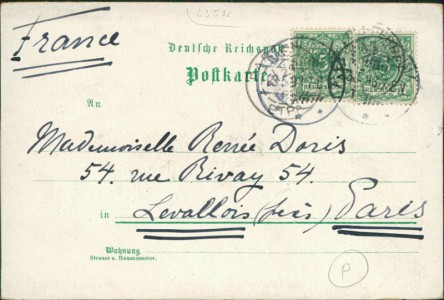 France
Deutsche Reichspost
Postkarte
An
Mademoiselle Renée Doris
54. rue Rivay 54.
in Levallois (près) Paris
Wohnung
Strasse u. Hausnummer.
P